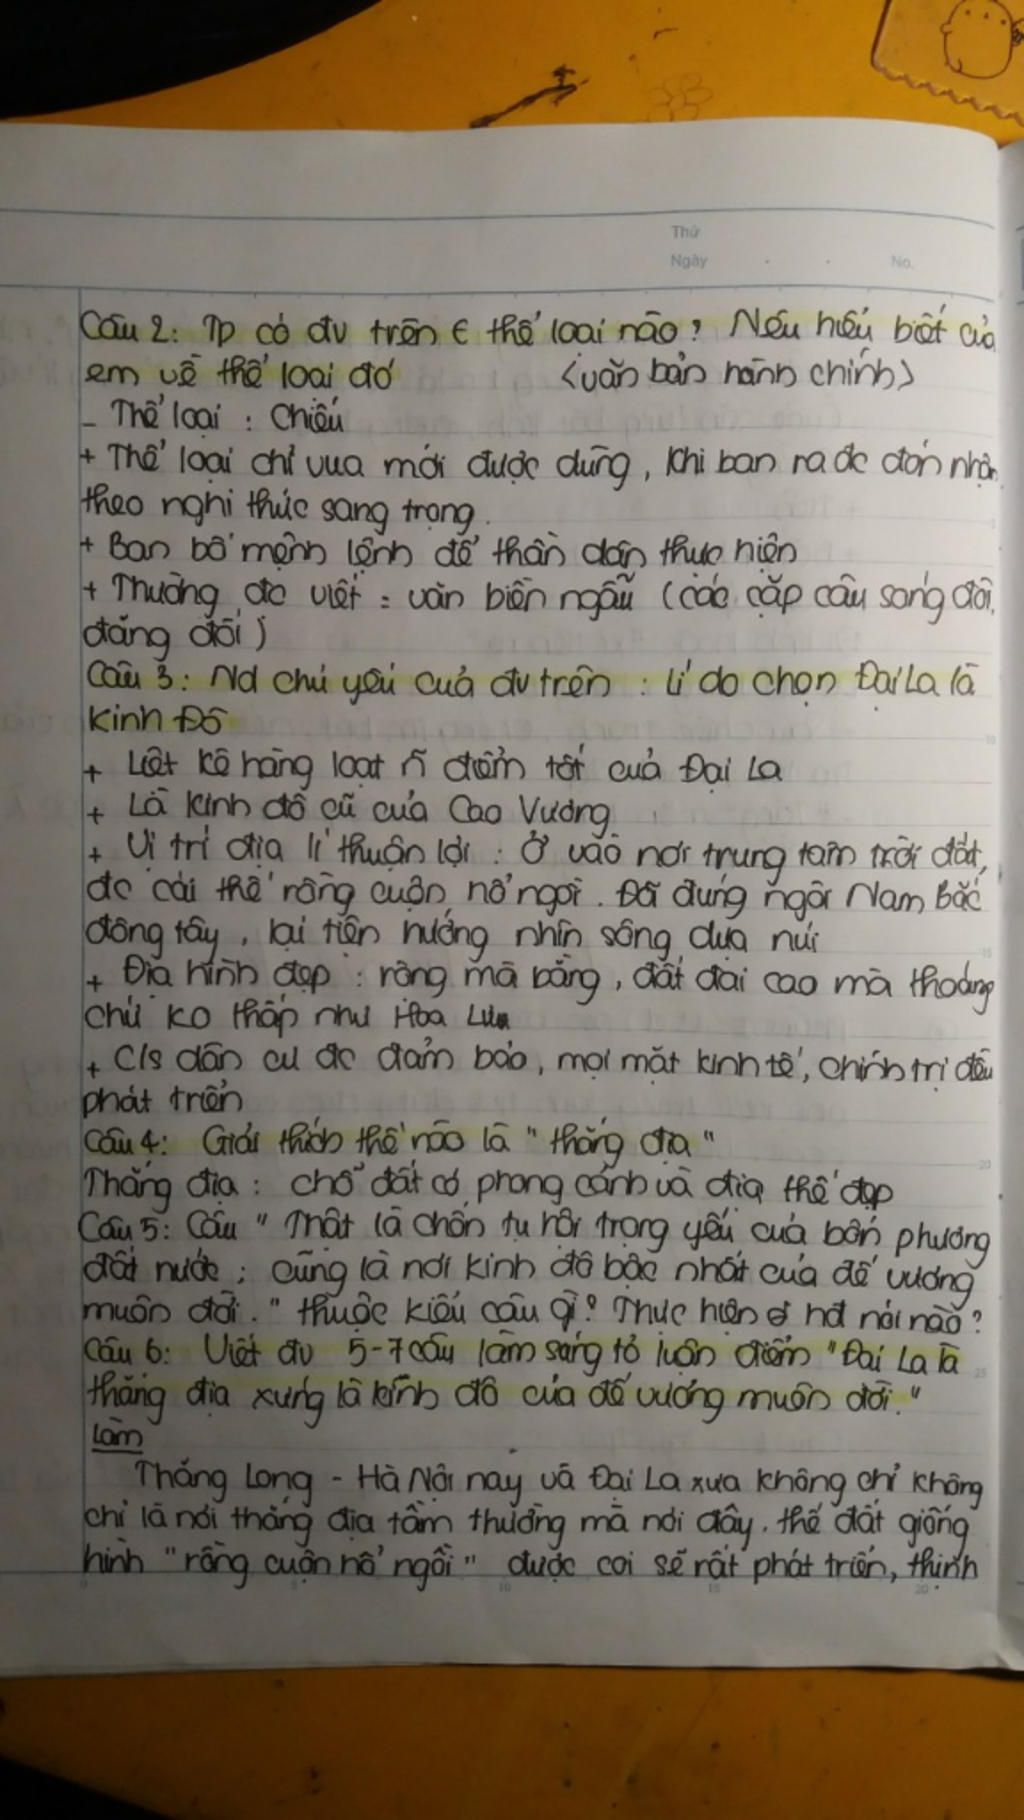 Thứ
Ngày No.
Câu 2: Tp có đv trên ∈ thể loại nào? Nêu hiểu biết của
em về thể loại đó <văn bản hành chính>
- Thể loại : Chiếu
+ Thể loại chỉ vua mới được dùng, khi ban ra đc đón nhận
theo nghi thức sang trọng.
+ Ban bố mệnh lệnh để thần dân thực hiện
+ Thường đc viết = văn biền ngẫu (các cặp câu song đôi,
đăng đối)
Câu 3: Nd chủ yếu của đv trên : Lí do chọn Đại La là
Kinh Đô
+ Liệt kê hàng loạt ~ điểm tốt của Đại La
+ Là kinh đô cũ của Cao Vương
+ Vị trí địa lí thuận lợi : Ở vào nơi trung tâm trời đất,
đc cái thế rồng cuộn hổ ngồi. Đã đúng ngôi Nam Bắc
đông tây, lại tiện hướng nhìn sông dựa núi
+ Địa hình đẹp : rộng mà bằng, đất đai cao mà thoáng
chứ ko thấp như Hoa Lư
+ C/s dân cư đc đảm bảo, mọi mặt kinh tế, chính trị đều
phát triển
Câu 4: Giải thích thế nào là "thắng địa"
Thắng địa : chỗ đất có phong cảnh và địa thế đẹp
Câu 5: Câu "Thật là chốn tụ hội trọng yếu của bốn phương
đất nước; cũng là nơi kinh đô bậc nhất của đế vương
muôn đời." thuộc kiểu câu gì? Thực hiện hđ nói nào?
Câu 6: Viết đv 5-7 câu làm sáng tỏ luận điểm "Đại La là
thắng địa xứng là kinh đô của đế vương muôn đời."
Làm
Thăng Long - Hà Nội nay và Đại La xưa không chỉ không
chỉ là nơi thắng địa tầm thường mà nơi đây. thế đất giống
hình "rồng cuộn hổ ngồi" được coi sẽ rất phát triển, thịnh